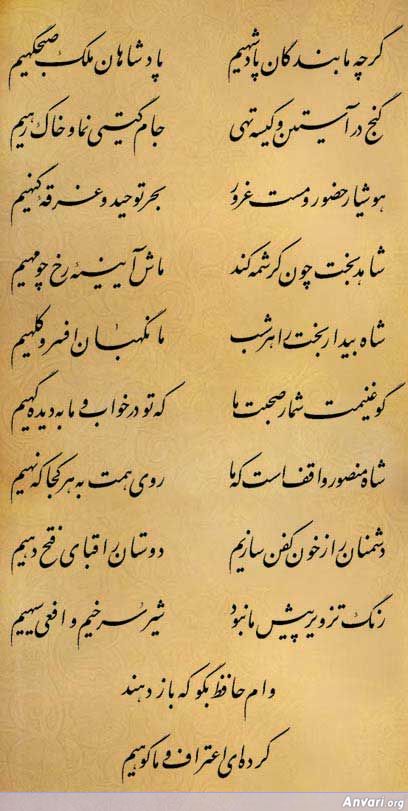 گرچه ما بندگان پادشهیم پادشاهان ملک صبحگهیم
گنج در آستین و کیسه تهی جام گیتی نما و خاک رهیم
هوشیار حضور و مست غرور بحر توحید و غرقه گنهیم
شاهد بخت چون کرشمه کند ماش آیینهٔ رخ چو مهیم
شاه بیدار بخت را هر شب ما نگهبان افسر و کلهیم
گو غنیمت شمار صحبت ما که تو در خواب و ما به دیده گهیم
شاه منصور واقف است که ما روی همت به هر کجا که نهیم
دشمنان را ز خون کفن سازیم دوستان را قبای فتح دهیم
رنگ تزویر پیش ما نبود شیر سرخیم و افعی سیهیم
وام حافظ بگو که باز دهند
کرده‌ای اعتراف و ما گوهیم
Anvari.org